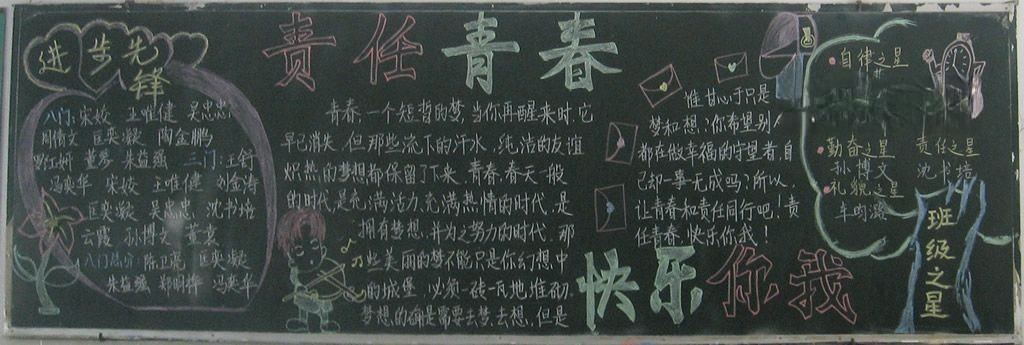 进步先
锋
八门:宋姣 王唯健 吴忠忠
周倩文 匡奕凝 陶金鹏
董雾 朱益蕴 三门:王轩
冯英华 宋姣 王唯健 刘金涛
匡奕凝 吴忠忠 沈书培
云霞 孙博文 董袁
八门 陈卫 匡奕凝
朱益蕴 郑明桦 冯英华
责任青春
青春,一个短暂的梦,当你再醒来时,它
早已消失,但那些流下的汗水,纯洁的友谊
炽热的梦想都保留了下来,青春,春天一般
的时代是充满活力,充满热情的时代,是
拥有梦想,并为之努力的时代,那
些美丽的梦不能只是你幻想中
的城堡,必须一砖一瓦地堆砌。
梦想的确是需要去梦,去想,但是
谁甘心于只是
梦和想;你希望别人
都在做幸福的守望者,自
己却一事无成吗?所以,
让青春和责任同行吧!责
任青春,快乐你我!
快乐你我
自律之星
勤奋之星 责任之星
孙博文 沈书培
礼貌之星
车明
班级之星